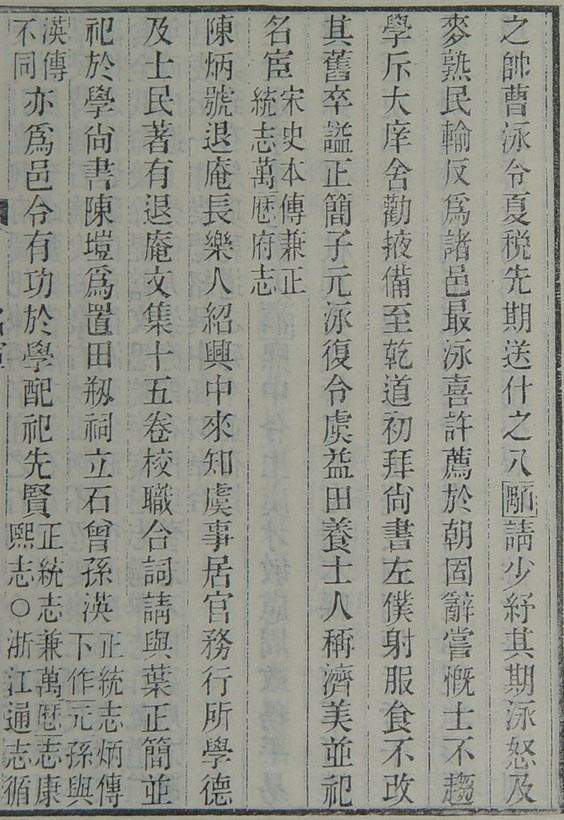 之帥曹泳令夏稅先期送什之八顒請少紓其期泳怒及
麥熟民輸反爲諸邑最泳喜許薦於朝固辭嘗慨士不趨
學斥大庠舍勸掖備至乾道初拜尙書左僕射服食不改
其舊卒謚正簡子元泳復令虞益田養士人稱濟美並祀
名宦
宋史本傳兼正
統志萬厯府志
陳炳號退庵長樂人紹興中來知虞事居官務行所學德
及士民著有退庵文集十五卷校職合詞請與葉正簡並
祀於學尙書陳塏爲置田剏祠立石曾孫漢
正統志炳傳
下作元孫與
漢傳
不同
亦爲邑令有功於學配祀先賢
正統志兼萬厯志康
熙志○浙江通志循